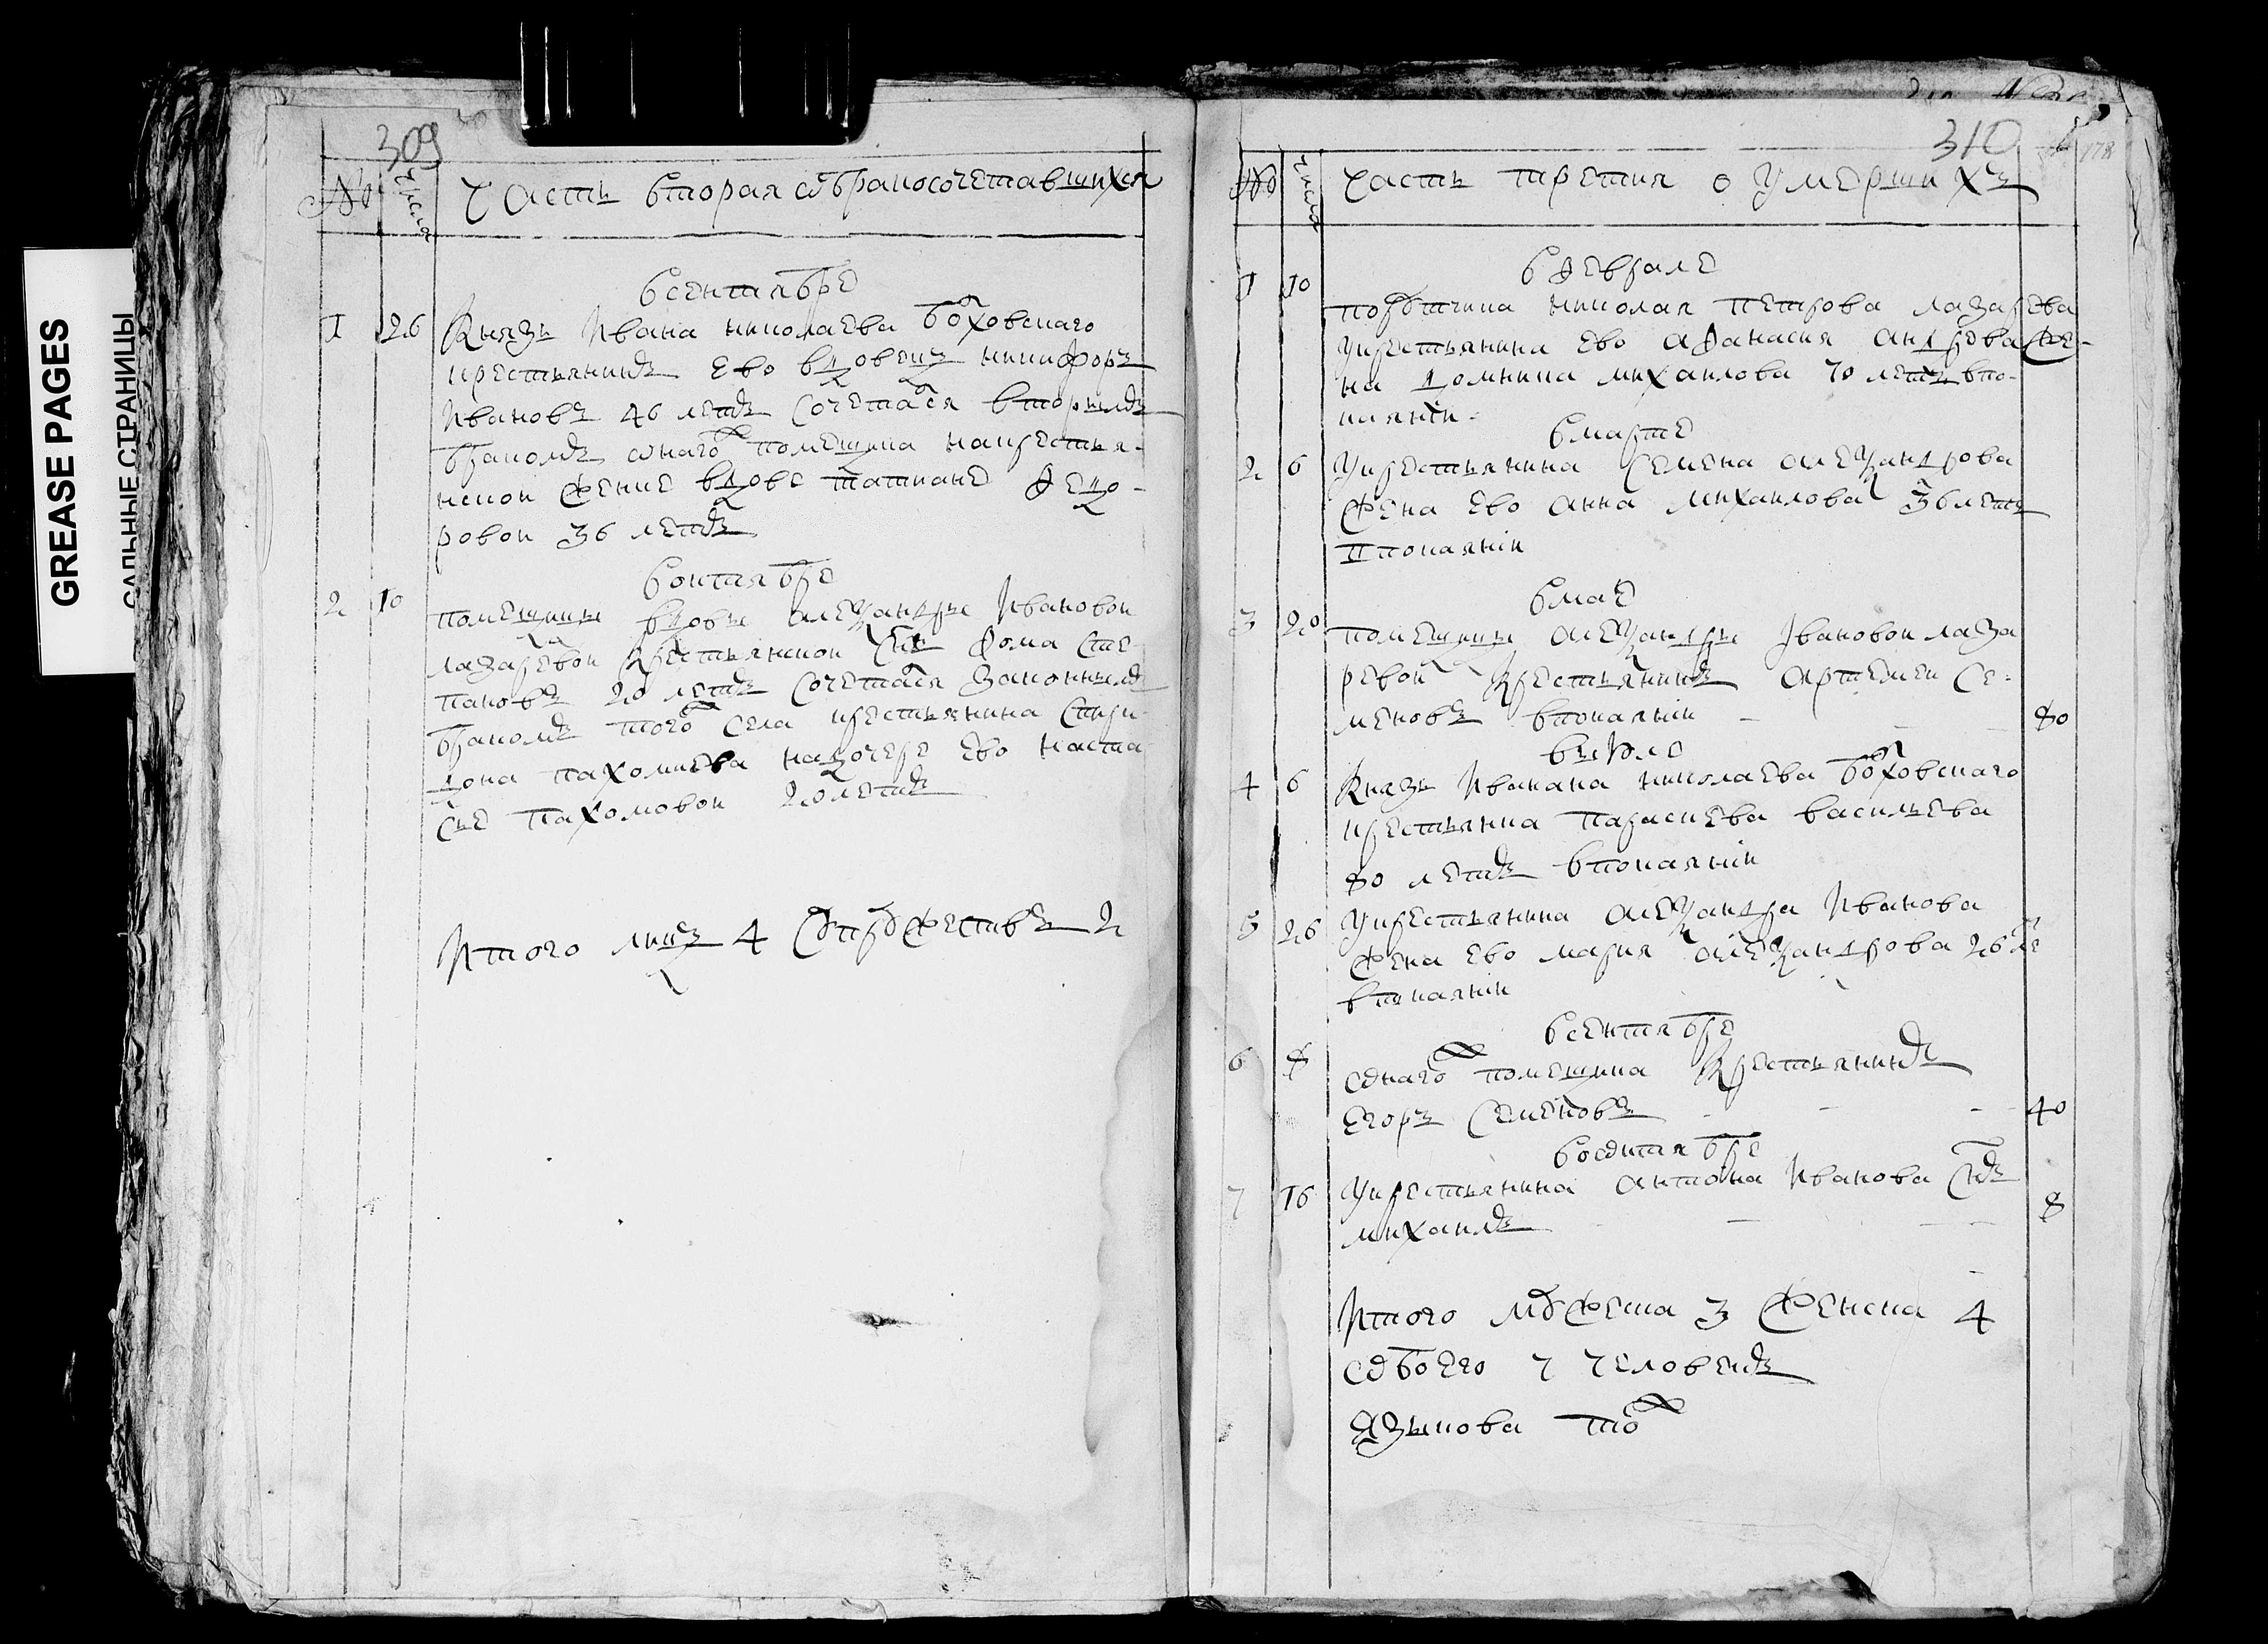 GREASE PAGES
САЛЬНЫЕ СТРАНИЦЫ
309
№ числа Часть вторая о бракосочетавшихся
в сентябре
1 26 Князь Ивана николаева болховскаго
крестьянинъ ево вдовецъ никифоръ
Ивановъ 46 летъ сочетался вторымъ
бракомъ оного помещика на крестья-
нской жение вдове татиане Федо-
ровои 36 летъ
в октябре
2 10 помещицы вдовы алеѯандры Ивановои
лазаревои крестьянской снъ Фома сте-
пановъ 20 летъ сочетался законнымъ
бракомъ того села крестьянина спири-
дона пахомиева на дочере ево наста
сье пахомовои 20 летъ
Итого лицъ 4 супружествъ 2
310
178
№ числа Часть третия о умершихъ
в Феврале
1 10 порутчика николая петрова лазарева
у крестьянина ево аѳанасия андрева же-
на домника михаилова 70 летъ в по-
каянии
в марте
2 6 У крестьянина семена алеѯандрова
жена ево анна михаилова 36 летъ
в покаянии
в мае
3 20 помещицы алеѯандры Ивановои лаза
ревои крестьянинъ артемеи се-
меновъ в покаянии - - - 80
в июле
4 6 Князь Иванана николаева болховскаго
крестьянка параскева васильева
80 летъ в покаянии
5 26 У крестьянина алеѯандра Иванова
жена ево мария алеѯандрова 26 ле
в покаянии
в сентябре
6 8 оного помещика крестьянинъ
Егоръ семеновъ - - - 40
7 16 У крестьянина антона Иванова снъ
михаилъ - - - 8
Итого мужеска 3 женска 4
обоего 7 человекъ
Языкова то